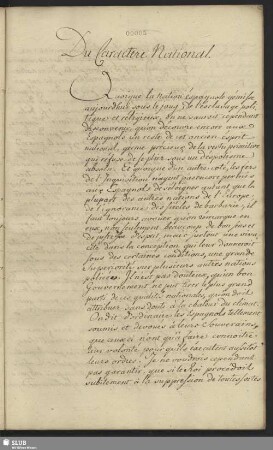 Du Caractere National.
Quoique la nation espagnole gémisse
aujourdhui sous le joug de l'esclavage poli-
tique et religieux, on ne sauroit cependant
disconvenir, qu'on decouvre encore aux
Espagnols un reste de cet ancien esprit
national, genie precieux de la vertu primitive
qui refuse de se plier sous un despotisme
absolu. Et quoique d'un autre coté, les fers
de l'Inquisition
aux Espagnols de s'eloigner autant que la
plupart des autres nations de l'Europe
de l'ignorance des siecles de barbarie, il
faut toujours avouer, qu'on remarque en
eux, non seulement beaucoup de bon sens et
de justesse d'esprit, mais surtout une
dans la conception qui leur donneroit
sous de certaines conditions, une grande
superiorité sur plusieurs autres nations
policées. Il n'est pas douteux, qu'un bon
Gouvernement ne put tirer le plus grand
parti de ces qualités nationales, qu'on doit
attribuer sans doute à la chaleur du climat.
On dit d'ordinaire les Espagnols tellement
soumis et devoués à leurs Souverains,
que ceux-ci n'ont qu'à faire connoitre
leur volonté pour qu'ils executent aussitot
leurs ordres. Je ne voudrois cependant
pas garantir, que si le Roi procedoit
subitement à la suppression de toutes sortes